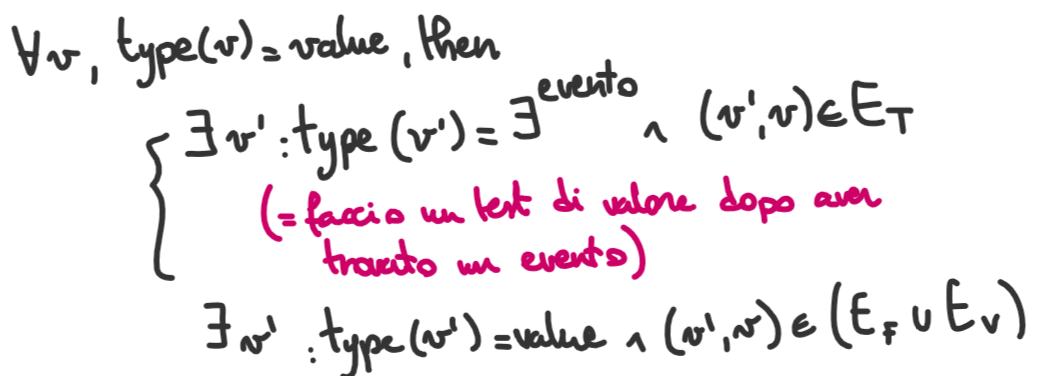 ∀v, type(v) = value, then
∃v' : type(v') = ∃^evento ∧ (v',v) ∈ E_T
(= faccio un test di valore dopo aver
trovato un evento)
∃v' : type(v') = value ∧ (v',v) ∈ (E_F ∪ E_V)